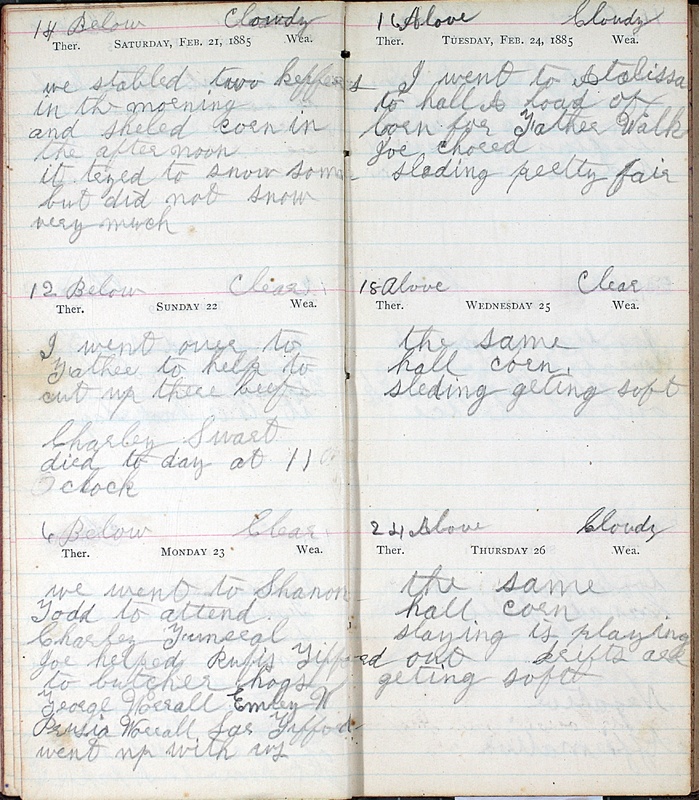 14 Below Cloudy
Ther. SATURDAY, FEB. 21, 1885 Wea.
we stabled two keffers
in th morning
and sheled corn in
the after noon
it tryed to snow som
but did not snow
very much
12 Below Clear
Ther. SUNDAY 22 Wea.
I went over to
Father to help to
cut up there beef
Charley Swart
died to day at 11
O clock
6 Below Clear
Ther. MONDAY 23 Wea.
we went to Shanon
Todd to attend
Charley Funseal
Joe helped Rufis Gifford
to butcher hogs
George Worrall Emley W
Persia Worrall Gifford
went up with us
16 Above Cloudy
Ther. TUESDAY, FEB. 24, 1885 Wea.
I went to Atalissa
to hall A load of
corn for Father Walk
Joe chored
sleding pretty fair
18 Above Clear
Ther. WEDNESDAY 25 Wea.
the same
hall corn
sleding geting soft
24 Above Cloudy
Ther. THURSDAY 26 Wea.
the same
hall corn
slaying is playing
out drifts are
geting soft